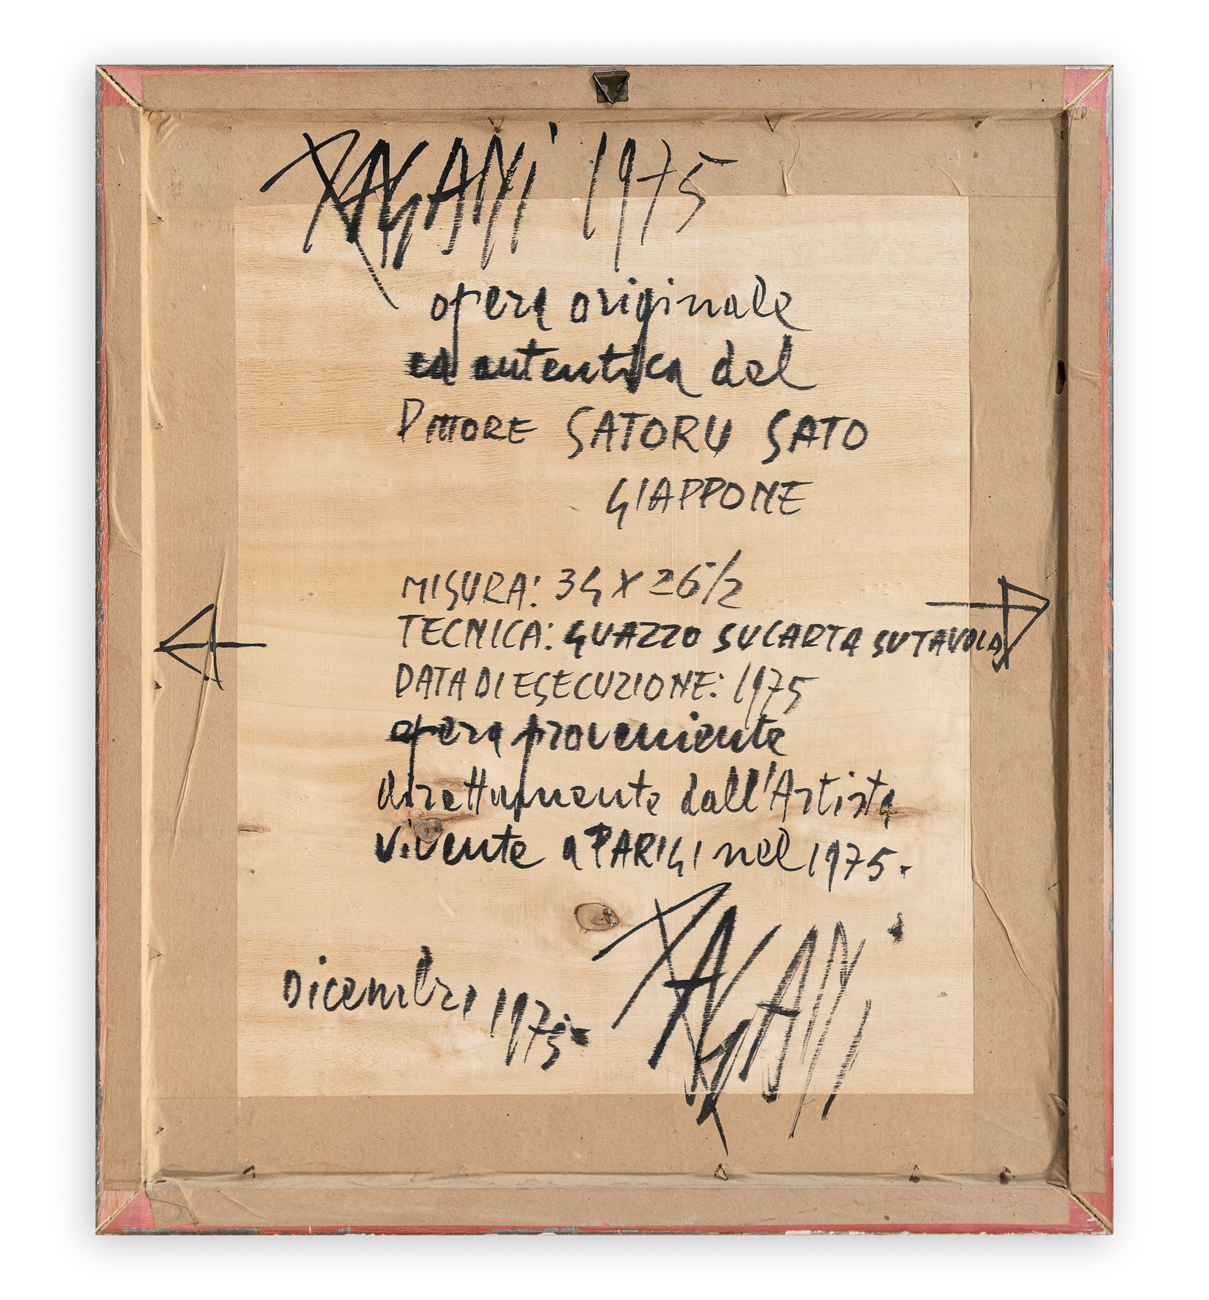 PAGANI 1975
opera originale
ed autentica del
PITTORE SATORU SATO
GIAPPONE
MISURA: 34 X 26/2
TECNICA: GUAZZO SU CARTA SU TAVOLA
DATA DI ESECUZIONE: 1975
opera proveniente
direttamente dall'Artista
vivente a PARIGI nel 1975.
Dicembre 1975.
PAGANI